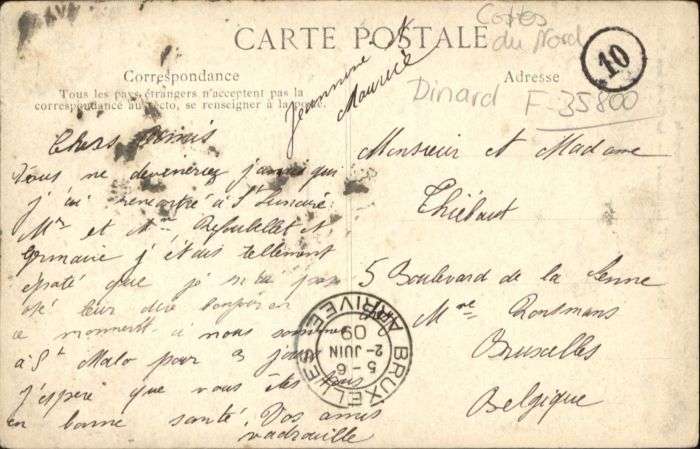 CARTE POSTALE
Cotes
du Nord
10
Correspondance
Tous les pays étrangers n'acceptent pas la
correspondance au recto, se renseigner à la poste.
Adresse
Dinard F-35800
Jeannine
Maurice
Chers Amis
Vous ne devenerez jamais qui
j'ai rencontré à St Lunaire
Mr et Mme et
Germaine j'étais tellement
épaté que je n'ai pas
osé leur dire bonjour en
ce moment ci nous sommes
à St Malo pour 3 jours
j'espère que vous êtes tous
en bonne santé. Vos amis
vadrouille
Monsieur et Madame
Thiébaut
5 Boulevard de la Senne
Mme
Bruxelles
Belgique
BRUXELLES ARRIVEE
5-6
2-JUIN
09